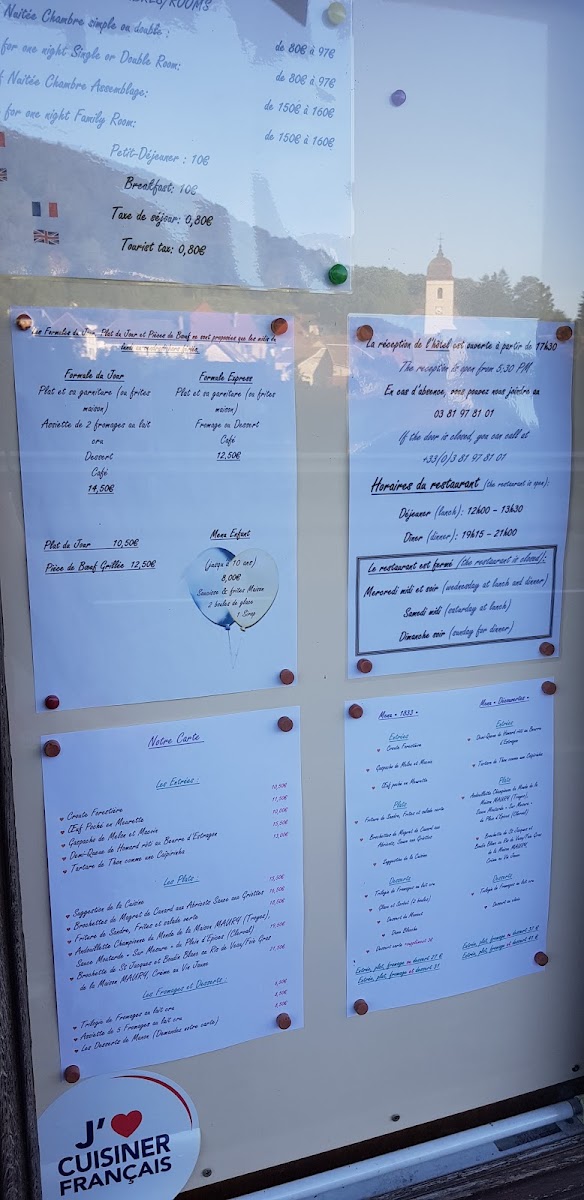 Nuitée Chambre simple ou double :
de 80€ à 97€
for one night Single or Double Room:
de 80€ à 97€
Nuitée Chambre Assemblage:
de 150€ à 160€
for one night Family Room:
de 150€ à 160€
Petit-Déjeuner : 10€
Breakfast: 10€
Taxe de séjour: 0,80€
Tourist tax: 0,80€
Les Formules du Jour, Plat du Jour et Pièces de Bœuf ne sont proposées que les midis du
Formule du Jour
Plat et sa garniture (ou frites
maison)
Assiette de 2 fromages au lait
cru
Dessert
Café
14,50€
Formule Express
Plat et sa garniture (ou frites
maison)
Fromage ou Dessert
Café
12,50€
Plat du Jour 10,50€
Pièce de Bœuf Grillée 12,50€
Menu Enfant
(jusqu'à 10 ans)
8,00€
Saucisse & frites Maison
2 boules de glace
1 Sirop
La réception de l'hôtel est ouverte à partir de 17h30
The reception is open from 5:30 PM.
En cas d'absence, vous pouvez nous joindre au
03 81 97 81 01
If the door is closed, you can call at
+33/(0)3 81 97 81 01
Horaires du restaurant (the restaurant is open):
Déjeuner (lunch): 12h00 - 13h30
Dîner (dinner): 19h15 - 21h00
Le restaurant est fermé (the restaurant is closed):
Mercredi midi et soir (wednesday at lunch and dinner)
Samedi midi (saturday at lunch)
Dimanche soir (sunday for dinner)
Notre Carte
Les Entrées :
Croute Forestière
Œuf Poché en Meurette
Gaspacho de Melon et Macvin
Demi-Queue de Homard rôti au Beurre d'Estragon
Tartare de Thon comme une Caïpirinha
Les Plats :
Suggestion de la Cuisine
Brochettes de Magret de Canard aux Abricots Sauce aux Griottes
Friture de Sandre, Frites et salade verte
Andouillette Championne du Monde de la Maison MAURY (Troyes),
Sauce Moutarde « Sur Mesure » de Plein d'Epices (Clerval)
Brochette de St Jacques et Boudin Blanc au Ris de Veau/Foie Gras
de la Maison MAURY, Crème au Vin Jaune
Les Fromages et Desserts :
Trilogie de Fromages au lait cru
Assiette de 5 Fromages au lait cru
Les Desserts de Manon (Demandez votre carte)
Menu « 1833 »
Entrées
Croute Forestière
Gaspacho de Melon et Macvin
Œuf poché en Meurette
Plats
Friture de Sandre, Frites et salade verte
Brochettes de Magret de Canard aux
Abricots, Sauce aux Griottes
Suggestion de la Cuisine
Desserts
Trilogie de Fromages au lait cru
Glace et Sorbet (2 boules)
Dessert du Moment
Dame Blanche
Entrée, plat, fromage ou dessert 27 €
Entrée, plat, fromage et dessert 31
Menu « Découvertes »
Entrées
Demi-Queue de Homard rôti au Beurre
d'Estragon
Tartare de Thon comme une Caïpirinha
Plats
Andouillette Championne du Monde de la
Maison MAURY (Troyes),
Sauce Moutarde « Sur Mesure »
de Plein d'Epices (Clerval)
Brochette de St Jacques et
Boudin Blanc au Ris de Veau/Foie Gras
de la Maison MAURY,
Crème au Vin Jaune
Desserts
Trilogie de Fromages au lait cru
Dessert au choix
Entrée, plat, fromage ou dessert 37 €
Entrée, plat, fromage et dessert 41 €
J'
CUISINER
FRANÇAIS